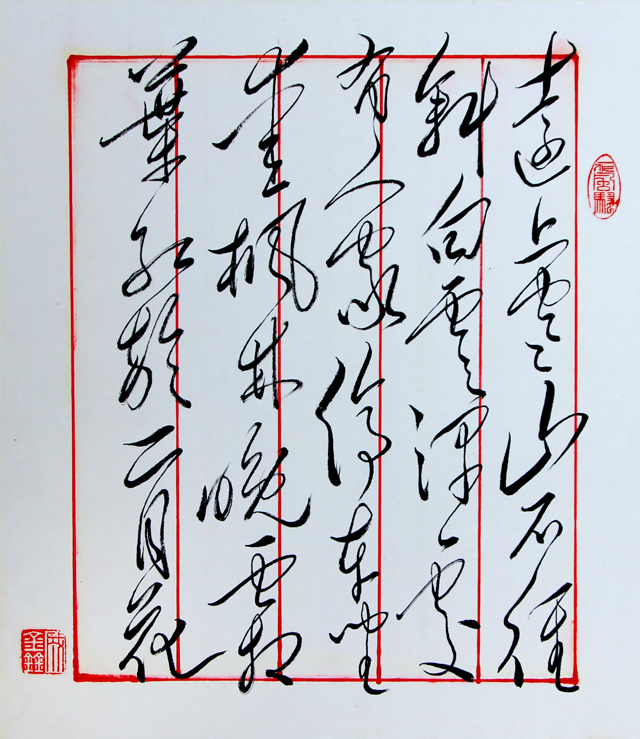 遠上寒山石徑
斜白雲深處
有人家停車坐
愛楓林晚霜
葉紅於二月花